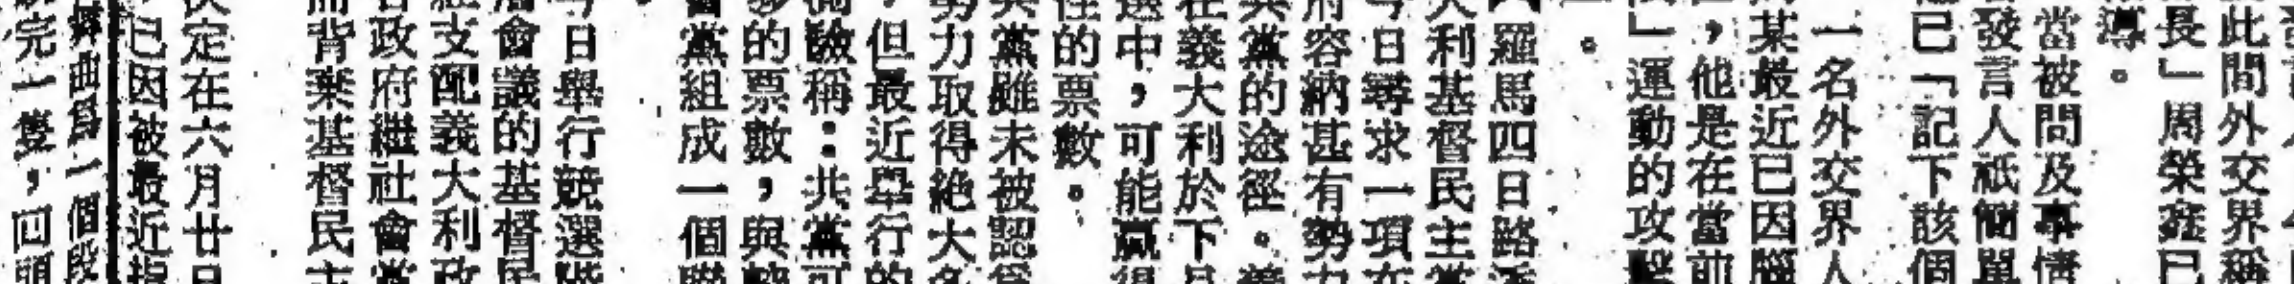 此間外交界稱
長」周榮鑫已
導。
當被問及事情
發言人祇簡單
已「記下該個
一名外交界人
某最近已因腦
，他是在當前
」運動的攻擊
。
羅馬四日路透
大利基督民主黨
今日尋求一項在
府容納甚有勢力
共黨的途徑。義
在義大利於下月
選中，可能贏得
佳的票數。
共黨雖未被認爲
勢力取得絶大多
，但最近舉行的
測驗稱：共黨可
多的票數，與
會黨組成一個聯
今日舉行競選
層會議的基督民
支配義大利政
政府繼社會黨
而背棄基督民主
決定在六月廿日
已因被最近指
曲爲一個段
完一隻，回頭